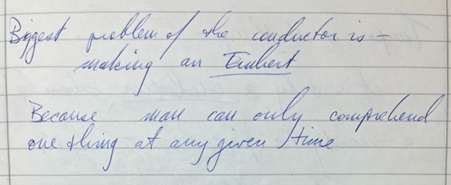 Biggest problem of the conductor is –
making an Einheit
Because man can only comprehend
one thing at any given time